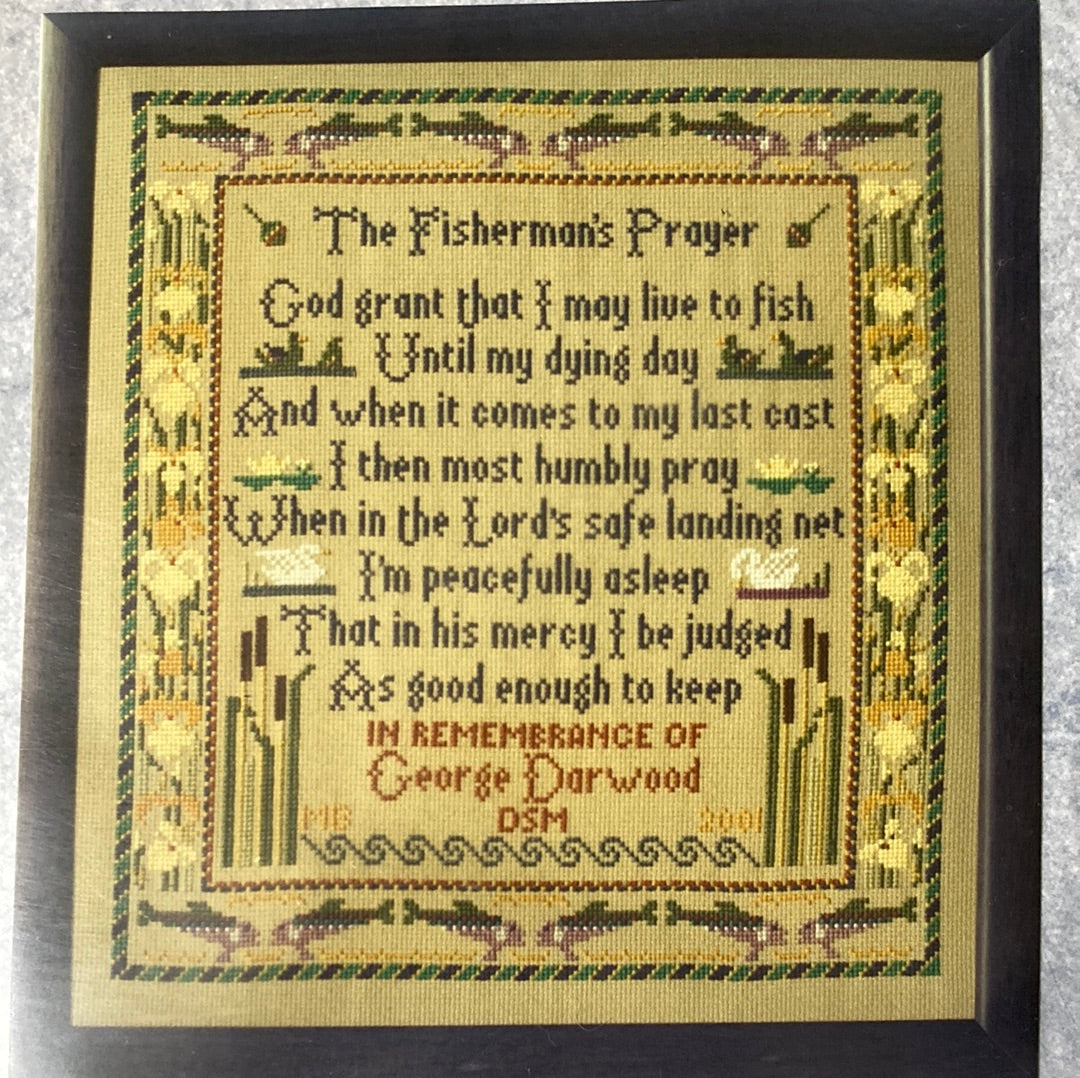 The Fisherman's Prayer
God grant that I may live to fish
Until my dying day
And when it comes to my last cast
I then most humbly pray
When in the Lord's safe landing net
I'm peacefully asleep
That in his mercy I be judged
As good enough to keep
IN REMEMBRANCE OF
George Darwood
MB DSM 2001